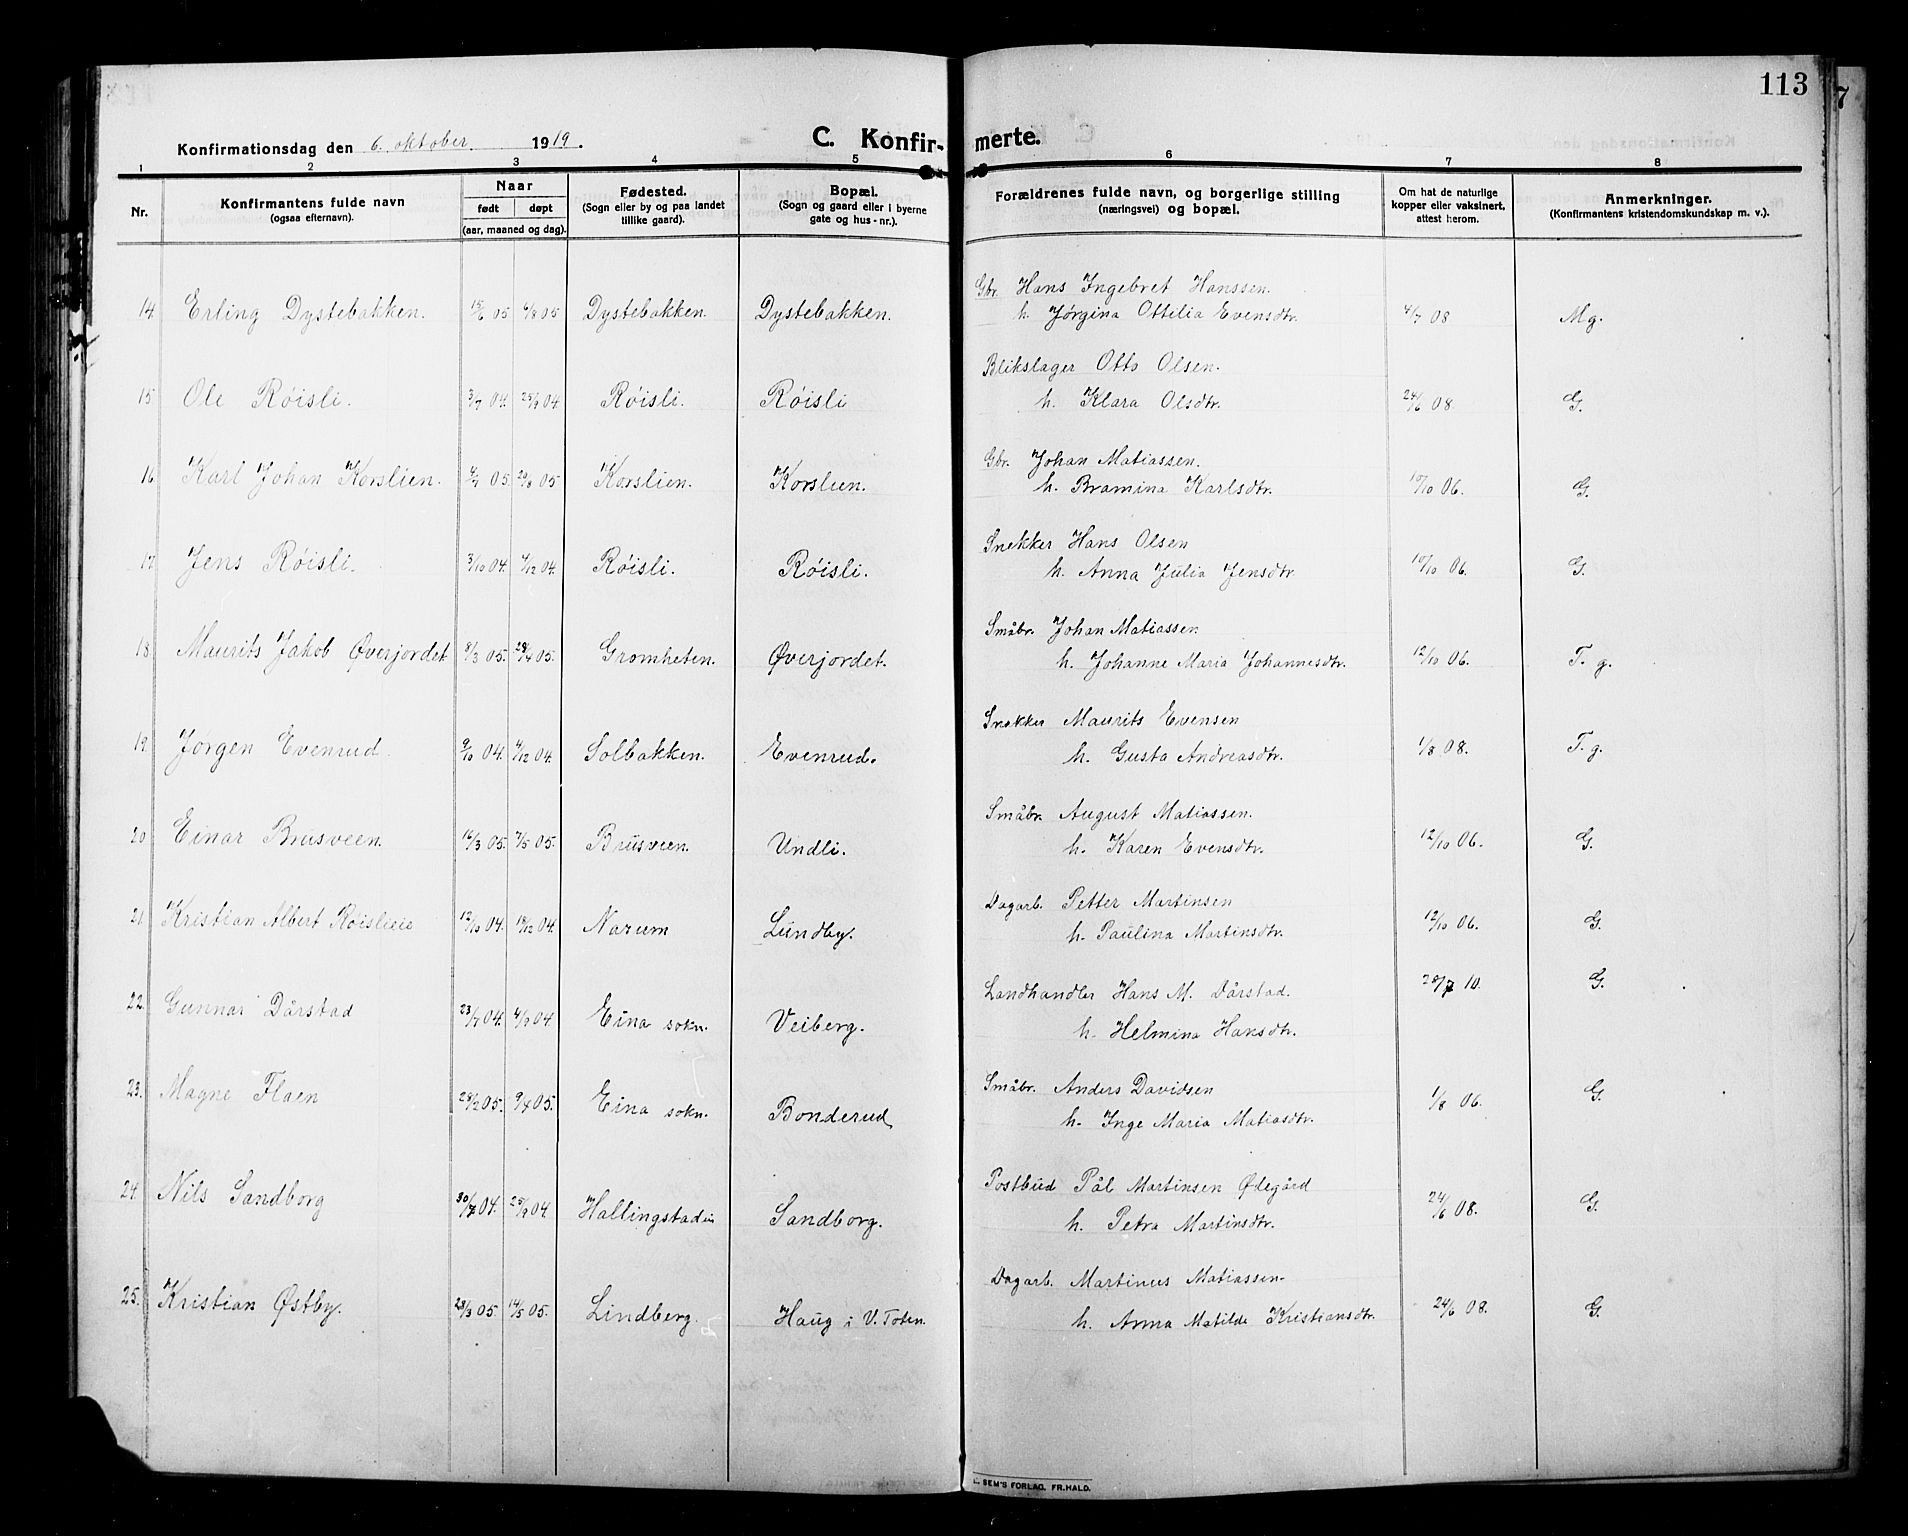 113
Konfirmationsdag den 6. oktober 1919.
C. Konfirmerte.
1 2 3 4 5 6 7 8
Nr.
Konfirmantens fulde navn
(ogsaa efternavn).
Naar
født døpt
(aar, maaned og dag).
Fødested.
(Sogn eller by og paa landet
tillike gaard).
Bopæl.
(Sogn og gaard eller i byerne
gate og hus-nr.).
Forældrenes fulde navn, og borgerlige stilling
(næringsvei) og bopæl.
Om hat de naturlige
kopper eller vaksinert,
attest herom.
Anmerkninger.
(Konfirmantens kristendomskundskap m. v.).
Gbr. Hans Ingebret Hanssen.
14 Erling Dystebakken. 15/6 05 6/8 05 Dystebakken. Dystebakken. h. Jørgina Ottelia Evensdtr. 4/7 08 Mg.
Blikslager Otto Olsen.
15 Ole Røisli. 3/7 04. 25/9 04. Røisli. Røisli h. Klara Olsdtr. 24/6 08. G.
Gbr. Johan Matiassen.
16 Karl Johan Korslien. 05. 05 Korslien. Korslien. h. Bramina Karlsdtr. 10/10 06. G.
Snekker Hans Olsen
17 Jens Røisli. 3/10 04. 4/12 04. Røisli. Røisli. h. Anna Julia Jensdtr 10/10 06. G.
Småbr. Johan Matiassen
18. Maurits Jakob Øverjordet 8/3 05. 05. Gromheten. Øverjordet. h. Johanne Maria Johannesdtr. 12/10 06. T. g.
Snekker Maurits Evensen
19 Jørgen Evenrud 9/10 04. 4/12 04. Solbakken. Evenrud. h. Gusta Andreasdtr. 1/8 08. T. g.
Småbr. August Matiassen.
20 Einar Brusveen. 16/3 05. 7/5 05. Brusveen. Undli. h. Karen Evensdtr. 12/10 06. G.
Dagarb. Petter Martinsen
21. Kristian Albert Røislieie 12/10 04. 18/12 04. Narum Lundby. h. Paulina Martinsdtr. 12/10 06. G.
Landhandler Hans M. Dårstad. 28/7 10. G.
22. Gunnar Dårstad 23/7 04. 4/9 04 Eina sokn. Veiberg. h. Helmina Hansdtr.
Småbr. Anders Davidsen
23. Magne Flaen 28/2 05. 9/4 05. Eina sokn. Bonderud h. Inge Maria Matiasdtr. 1/8 06. G.
Postbud Pål Martinsen Ødegård
24. Nils Sandborg 30/7 04. 25/9 04. Sandborg. h. Petra Martinsdtr. 24/6 08. G.
Dagarb. Martinus Matiassen.
25. Kristian Østby. 23/3 05. 14/5 05. Lindberg. Haug i V. Toten. h. Anna Matilde Kristiansdtr. 24/6 08. G.
SEM'S FORLAG. FR.HALD.